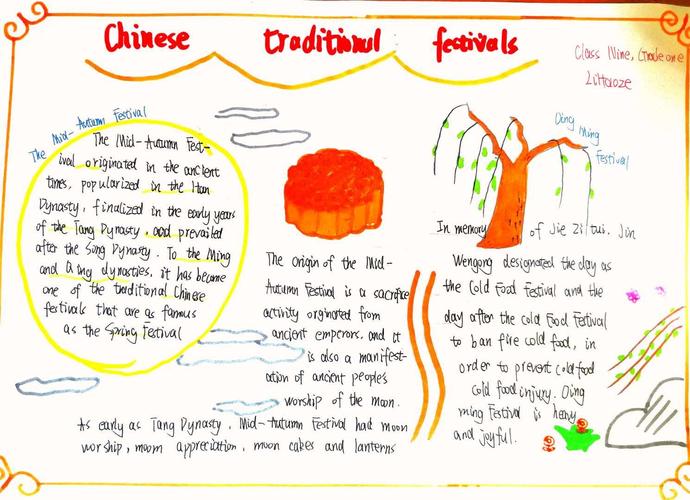 Chinese traditional festivals
Class Nine, Grade one
LiHaoze
The Mid-Autumn Festival
The Mid-Autumn Fest-
ival originated in the ancient
times, popularized in the Han
Dynasty, finalized in the early years
of the Tang Dynasty, and prevailed
after the Song Dynasty. To the Ming
and Qing dynasties, it has become
one of the traditional Chinese
festivals that are as famous
as the Spring Festival
The origin of the Mid-
Autumn Festival is a sacrifice
activity originated from
ancient emperors, and it
is also a manifest-
ation of ancient peoples
worship of the moon.
As early as Tang Dynasty, Mid-Autumn Festival had moon
worship, moom appreciation, moon cakes and lanterns
Qing Ming
Festival
In memory of Jie Zi tui. Jin
Wengong designated the day as
the Cold Food Festival and the
day after the cold Food Festival
to ban fire cold food, in
order to prevent cold food
cold food injury. Qing
ming Festival is heavy
and joyful.